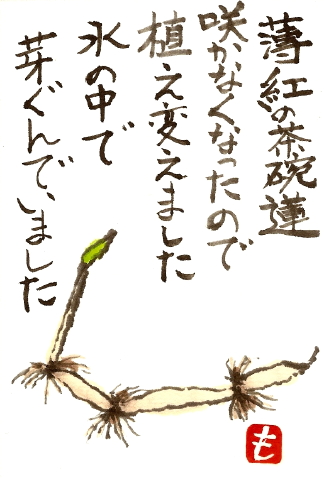 薄紅の茶碗蓮
咲かなくなったので
植え変えました
水の中で
芽ぐんでいました
も